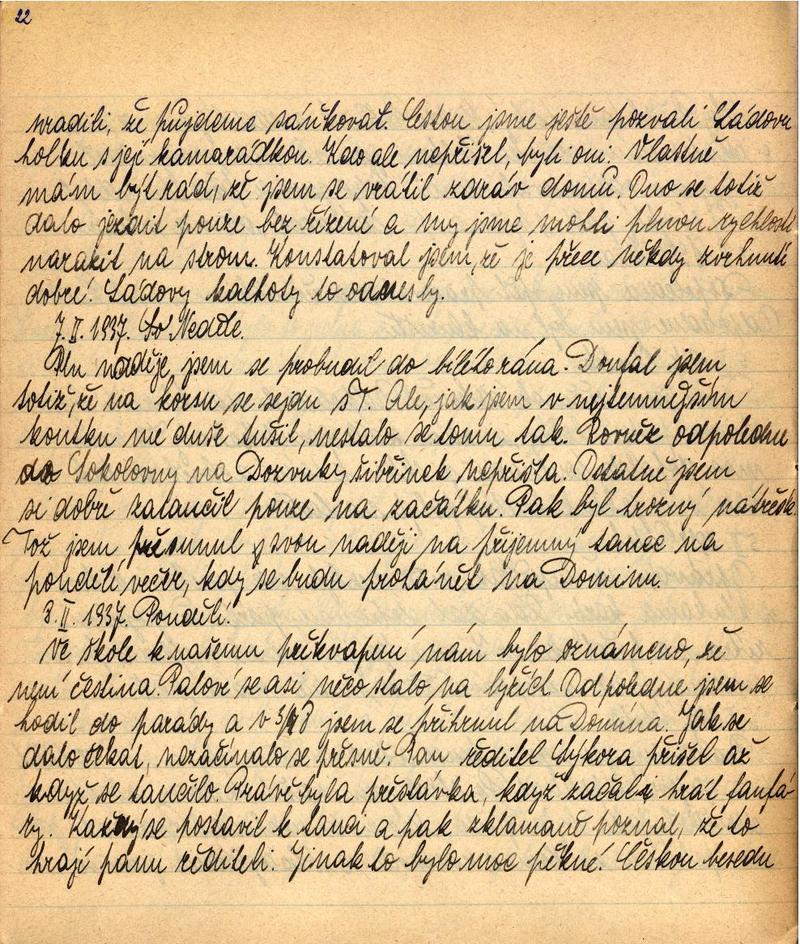 22
nradili, že půjdeme sáňkovat. Cestou jsme ještě pozvali Láďovu
holku s její kamarádkou. Kdo ale nepřišel, byli oni. Vlastně
mám být rád, že jsem se vrátil zdráv domů. Ono se totiž
dalo jezdit pouze bez řízení a my jsme mohli plnou rychlostí
narazit na strom. Konstatoval jsem, že je přece někdy zvrhnutí
dobré. Láďovy kalhoty to odnesly.
7. II. 1937. Neděle.
Pln naděje jsem se probudil do bílého rána. Doufal jsem
totiž, že na korsu se sejdu s T. Ale, jak jsem v nejtemnějším
koutku mé duše tušil, nestalo se tomu tak. Rovněž odpoledne
do Sokolovny na Dozvuky šibřinek nepřišla. Ostatně jsem
si dobře zatančil pouze na začátku. Pak byl hrozný nátřesk.
Tož jsem přesunul svou naději na příjemný tanec na
pondělí večer, kdy se budu prohánět na Dominu.
8. II. 1937. Pondělí.
Ve škole k našemu překvapení nám bylo oznámeno, že
není čeština. Palové se asi něco stalo na lyžích. Odpoledne jsem se
hodil do parády a v 3/4 8 jsem se přihrnul na Domina. Jak se
dalo čekat, nezačínalo se přesně. Pan ředitel Sýkora přišel až
když se tančilo. Právě byla přestávka, když začali hrát fanfá-
ry. Každý se postavil k tanci a pak zklamaně poznal, že to
hrají panu řediteli. Jinak to bylo moc pěkné. Českou besedu